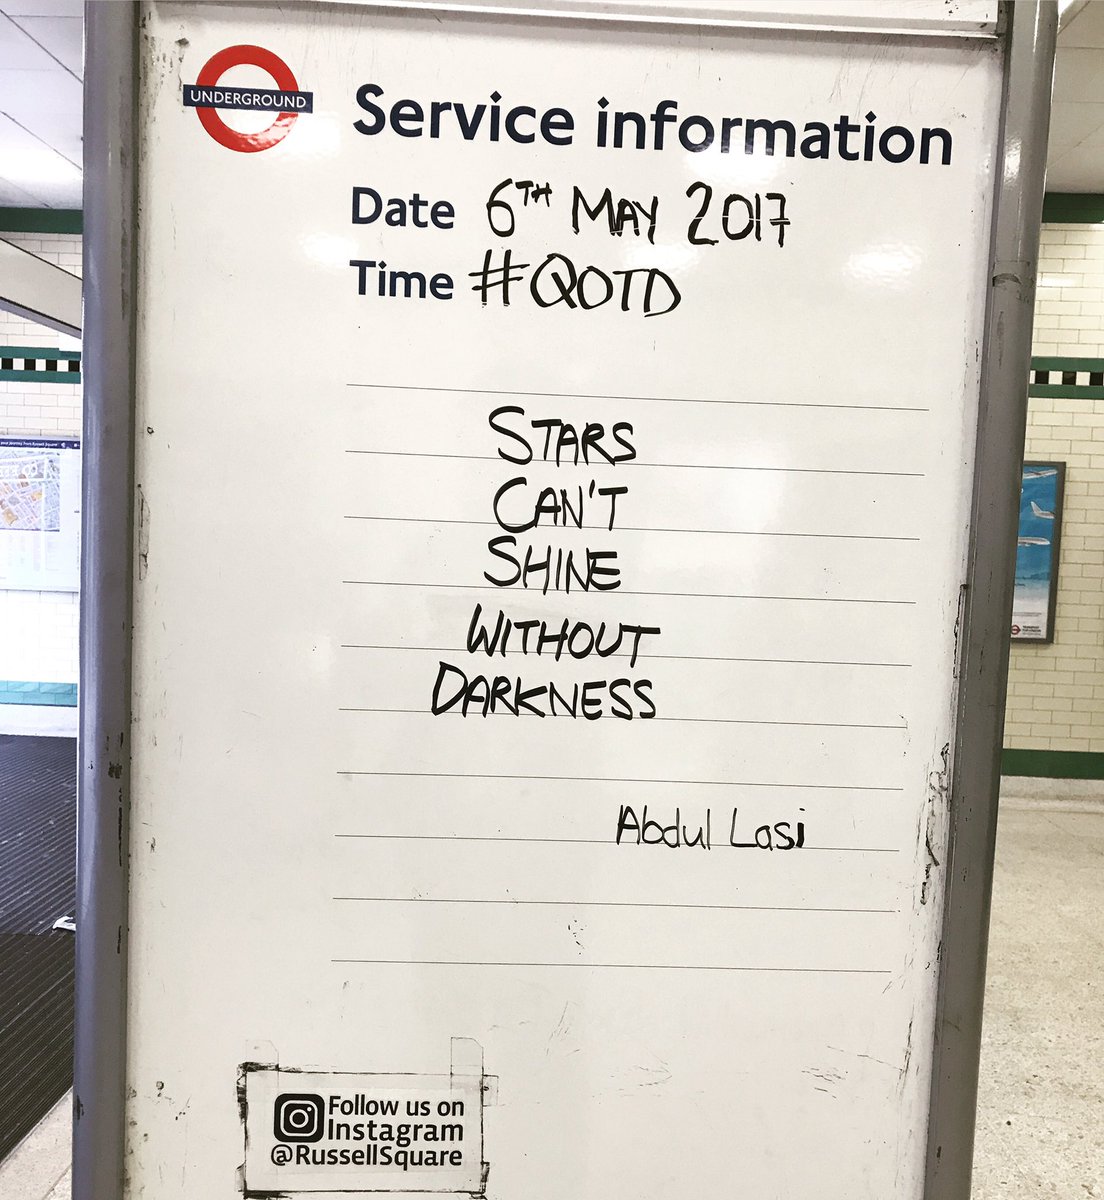 UNDERGROUND
Service information
Date 6TH MAY 2017
Time #QOTD
STARS
CAN'T
SHINE
WITHOUT
DARKNESS
Abdul Lasi
Follow us on
Instagram
@RussellSquare